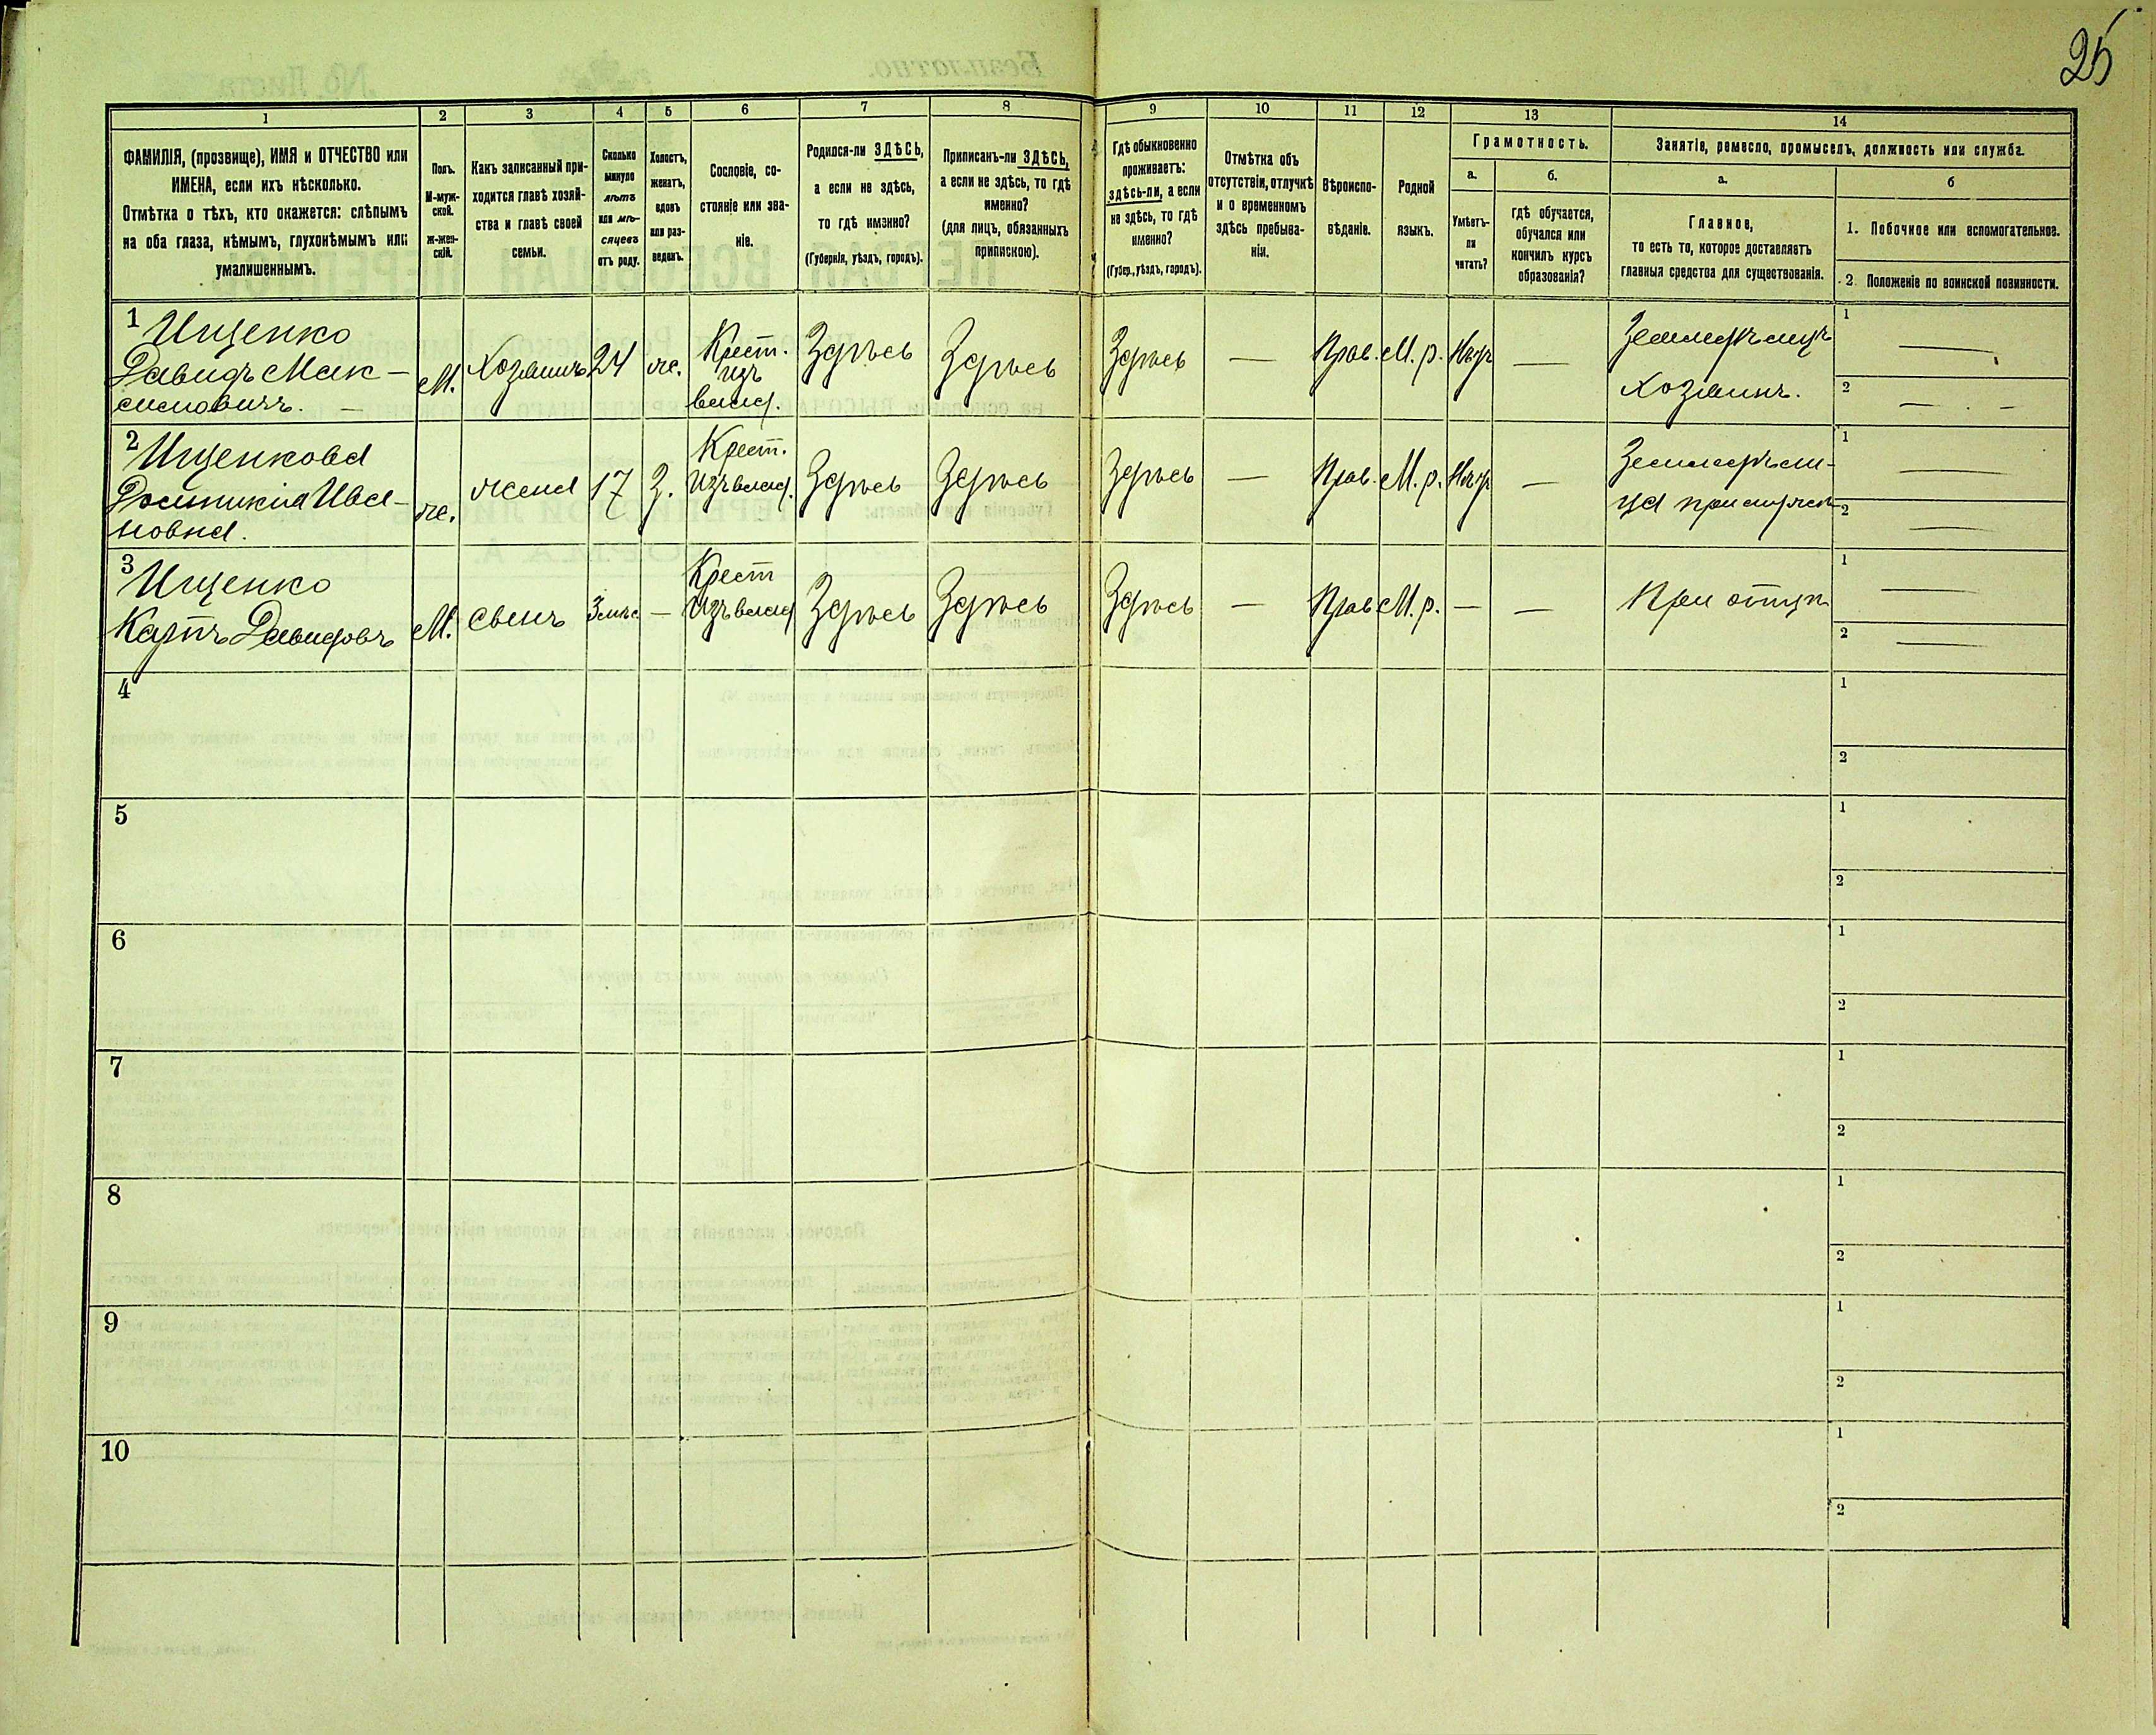 25
1
2
3
4
5
6
7
8
9
10
11
12
13
14
ФАМИЛІЯ, (прозвище), ИМЯ и ОТЧЕСТВО или
ИМЕНА, если ихъ нѣсколько.
Отмѣтка о тѣхъ, кто окажется: слѣпымъ
на оба глаза, нѣмымъ, глухонѣмымъ или
умалишеннымъ.
Полъ.
М-муж-
ской.
Ж-жен-
скій.
Какъ записанный при-
ходится главѣ хозяй-
ства и главѣ своей
семьи.
Сколько
минуло
лѣтъ
или мѣ-
сяцевъ
отъ роду.
Холостъ,
женатъ,
вдовъ
или раз-
веденъ.
Сословіе, со-
стояніе или зва-
ніе.
Родился-ли ЗДѢСЬ,
а если не здѣсь,
то гдѣ именно?
(Губернія, уѣздъ, городъ).
Приписанъ-ли ЗДѢСЬ,
а если не здѣсь, то гдѣ
именно?
(для лицъ, обязанныхъ
припискою).
Гдѣ обыкновенно
проживаетъ:
здѣсь-ли, а если
не здѣсь, то гдѣ
именно?
(Губер., уѣздъ, городъ).
Отмѣтка объ
отсутствіи, отлучкѣ
и о временномъ
здѣсь пребыва-
ніи.
Вѣроиспо-
вѣданіе.
Родной
языкъ.
Грамотность.
а.
Умѣетъ-
ли
читать?
б.
гдѣ обучается,
обучался или
кончилъ курсъ
образованія?
Занятіе, ремесло, промыселъ, должность или служба.
а.
Главное,
то есть то, которое доставляетъ
главныя средства для существованія.
б
1. Побочное или вспомогательное.
2. Положеніе по воинской повинности.
1 Ищенко
Давидъ Мак-
симовичъ. —
М.
Хозяинъ
24
ж.
Крест.
изъ
влад.
Здѣсь
Здѣсь
Здѣсь
—
Прав.
М. р.
Нѣтъ
—
Земледѣлецъ
Хозяинъ.
1 —
2 —
2 Ищенкова
Домникія Ива-
новна.
ж.
жена
17
З.
Крест.
Изъ влад.
Здѣсь
Здѣсь
Здѣсь
—
Прав.
М. р.
Нѣтъ
—
Земледѣли-
ца при мужѣ
1 —
2 —
3 Ищенко
Карпъ Давидовъ
М.
Сынъ
3 мѣс
—
Крест
Изъ влад
Здѣсь
Здѣсь
Здѣсь
—
Прав
М. р.
—
—
При отцѣ
1 —
2 —
4
1
2
5
1
2
6
1
2
7
1
2
8
1
2
9
1
2
10
1
2